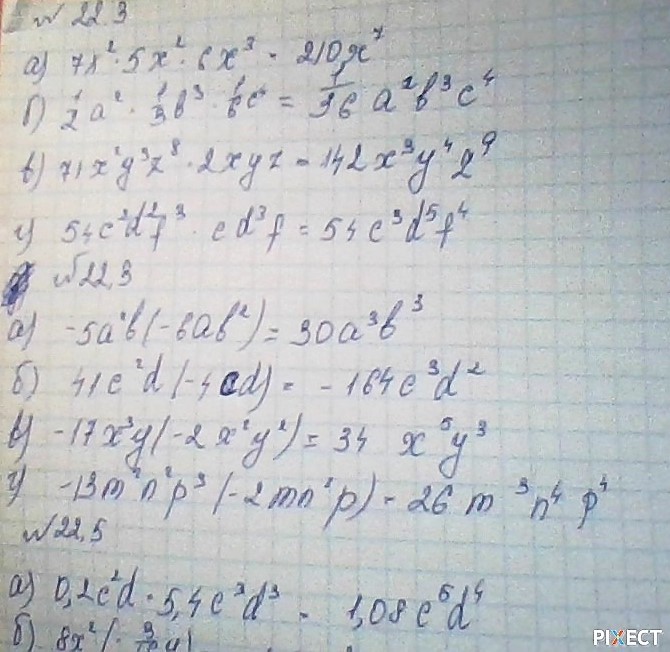 № 22.3
а) 7x²·5x²·6x³ = 210x⁷
б) 1/2 a² · 1/3 b³ · 1/6 c⁴ = 1/36 a²b³c⁴
в) 71x²y³z⁸ · 2xyz = 142x³y⁴z⁹
г) 54c²d²f³ · cd³f = 54c³d⁵f⁴
№22.3
а) -5a²b(-6ab²) = 30a³b³
б) 41c²d(-4cd) = -164c³d²
в) -17x³y(-2x²y²) = 34 x⁵y³
г) -13m²n²p³(-2mn²p) = 26m³n⁴p⁴
№22,5
а) 0,2c²d · 5,4c³d³ = 1,08c⁵d⁴
б) 8x²(-
PIXECT